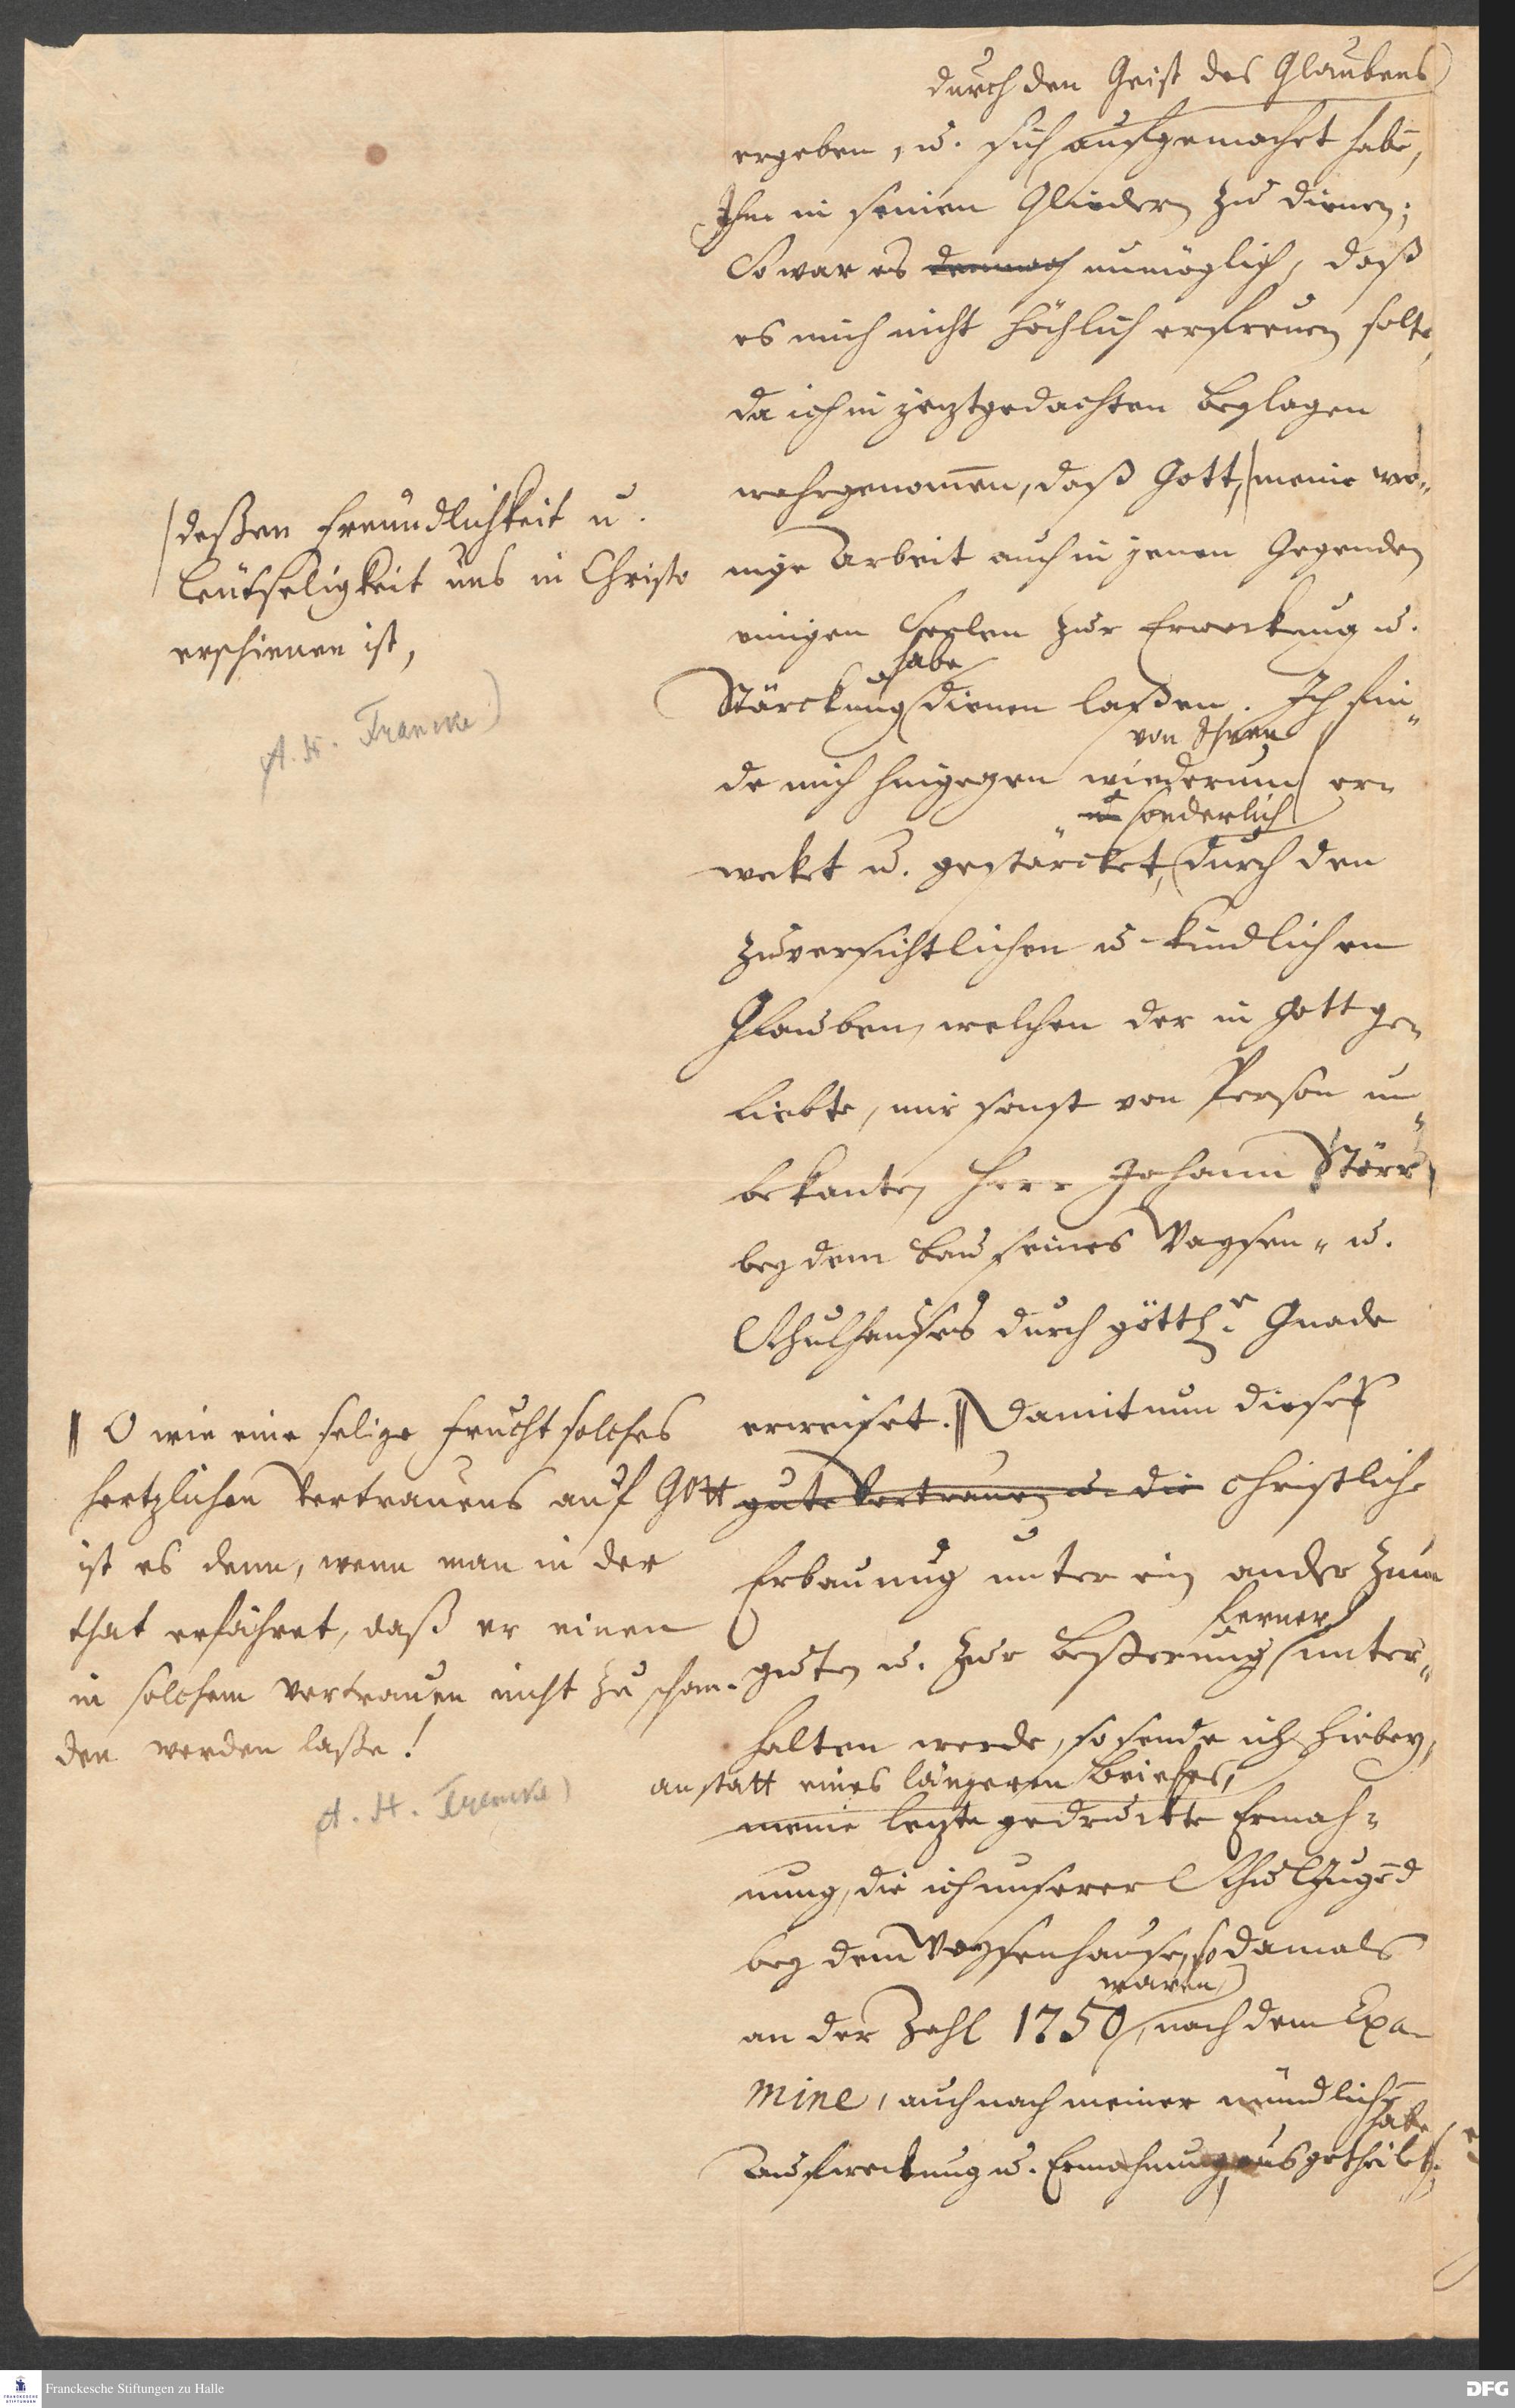 durch den Geist des Glaubens
ergeben, u. sich aufgemachet habē,
Ihm in seinen Gliedern zu dienen;
So war es dennoch unmöglich, daß
es mich nicht höchlich erfreuen solte,
da ich in jetztgedachten Beylagen
wahrgenom̄en, daß Gott, meine we-
nige Arbeit auch in jenen Gegenden
einigen Seelen zur Erweckung u.
habe
Stärckung dienen laßen. Ich fin-
von Ihnen
de mich hingegen wiederum er-
u. sonderlich
wecket u. gestärcket, durch den
zuversichtlichen u. kindlichen
Glauben, welchen der in Gott ge-
liebte, mir sonst von Person un-
bekante Herr Johann Störr
bey dem Bau seines Waysen- u.
Schulhauses durch göttl.r Gnade
erweiset. || Damit nun diese
gute Vertrauen u. die christliche
Erbauung unter ein ander zum
ferner
guten u. zur Beßerung unter-
halten werde, so sende ich hiebey,
anstatt eines längeren Briefes,
meine letzte gedruckte Ermah-
nung, die ich unserer SchulJugēd
bey dem Waysenhause, so damals
waren
an der Zahl 1750, nach dem Exa-
mine, auch nach meiner mündlichē
habe
Aufweckung u. Ermahnung, ausgetheilet;
deßen Freundlichkeit u.
Leutseligkeit uns in Christo
erschienen ist,
A. H. Francke)
|| O wie eine selige Frucht solches
hertzlichen Vertrauens auf Gott
ist es denn, wenn man in der
that erfähret, daß er einen
in solchem Vertrauen nicht zu schan-
den werden laße!
A. H. Francke)
Franckesche Stiftungen zu Halle
DFG